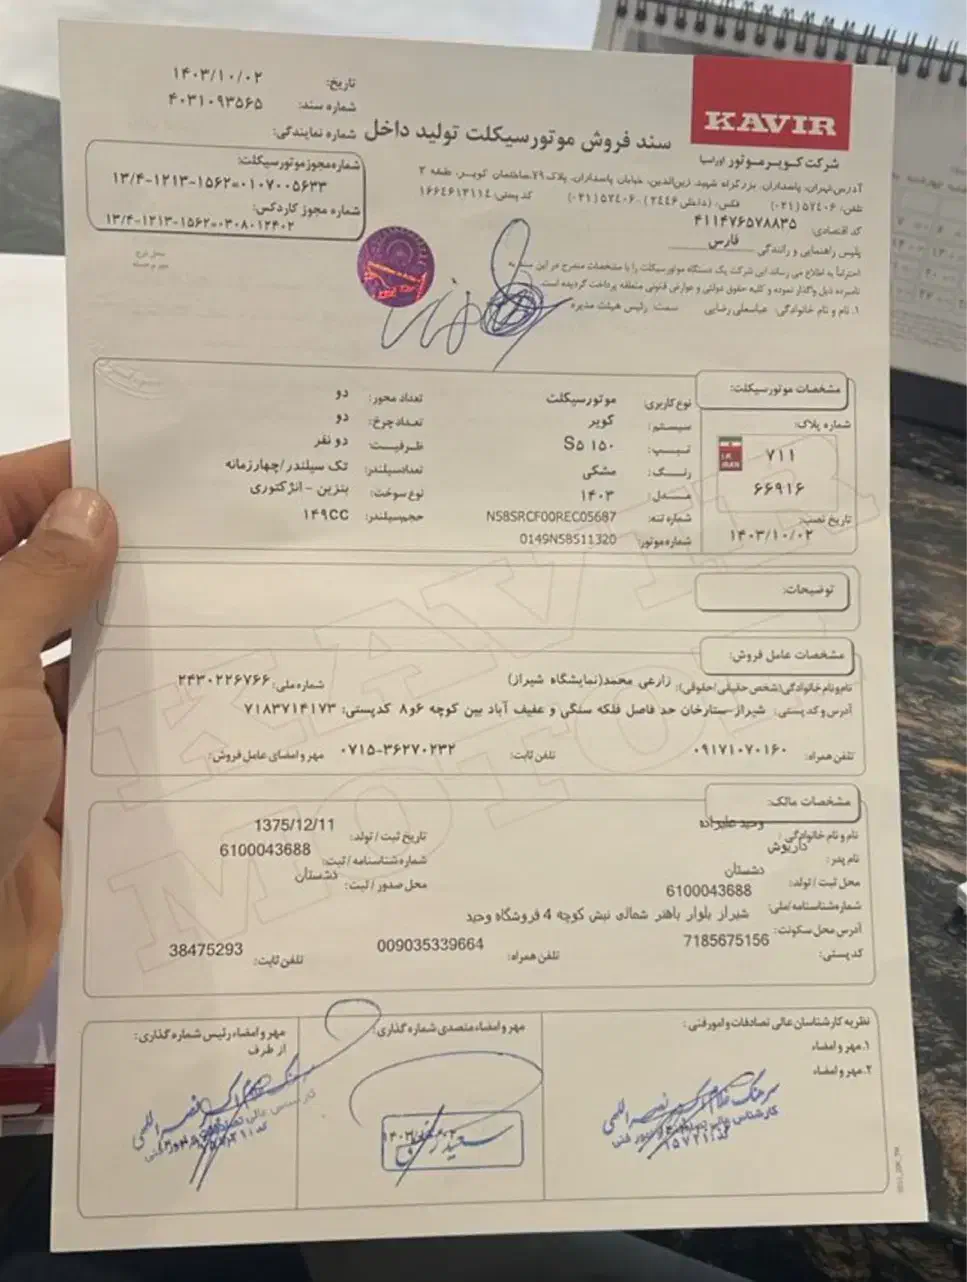 KAVIR
شرکت کویر موتور اوراسیا
سند فروش موتورسیکلت تولید داخل
تاریخ: ۱۴۰۳/۱۰/۰۲
شماره سند: ۴۰۳۱۰۹۳۵۶۵
شماره نمایندگی:
شماره مجوز موتورسیکلت:
۱۳/۴-۱۲۱۳-۱۵۶۲=۰۱۰۷۰۰۵۶۳۳
شماره مجوز کاردکس:
۱۳/۴-۱۲۱۳-۱۵۶۲=۰۳۰۸۰۱۲۴۰۲
آدرس:تهران، پاسداران، بزرگراه شهید زین‌الدین، خیابان پاسداران، پلاک ۷۹،ساختمان کویر، طبقه ۲
تلفن: ۵۷۴۰۶ (۰۲۱) فکس: (داخلی ۲۴۴۶) ۵۷۴۰۶ (۰۲۱) کد پستی: ۱۶۶۴۶۱۳۱۱۴
کد اقتصادی: ۴۱۱۴۷۶۵۷۸۸۳۵
پلیس راهنمایی و رانندگی فارس
احتراماً به اطلاع می رساند این شرکت یک دستگاه موتورسیکلت را با مشخصات مندرج در این به
نامبرده ذیل واگذار نموده و کلیه حقوق دولتی و عوارض قانونی متعلقه پرداخت گردیده است.
۱. نام و نام خانوادگی: عباسعلی رضایی سمت: رئیس هیئت مدیره
محل درج
مهر برجسته
مشخصات موتورسیکلت:
شماره پلاک:
I.R.
IRAN
۷۱۱
۶۶۹۱۶
تاریخ نصب:
۱۴۰۳/۱۰/۰۲
نوع کاربری: موتورسیکلت تعداد محور: دو
سیستم: کویر تعداد چرخ: دو
تیپ: S۵ ۱۵۰ ظرفیت: دو نفر
رنگ: مشکی تعداد سیلندر: تک سیلندر/چهارزمانه
مدل: ۱۴۰۳ نوع سوخت: بنزین - انژکتوری
شماره تنه: N58SRCF00REC05687 حجم سیلندر: ۱۴۹CC
شماره موتور: 0149N58511320
توضیحات:
مشخصات عامل فروش:
نام و نام خانوادگی(شخص حقیقی/حقوقی): زارعی محمد(نمایشگاه شیراز) شماره ملی: ۲۴۳۰۲۲۶۷۶۶
آدرس و کد پستی: شیراز-ستارخان حد فاصل فلکه سنگی و عفیف آباد بین کوچه ۶و۸ کدپستی: ۷۱۸۳۷۱۴۱۷۳
تلفن همراه: ۰۹۱۷۱۰۷۰۱۶۰ تلفن ثابت: ۰۷۱۵-۳۶۲۷۰۲۳۲ مهر و امضای عامل فروش:
مشخصات مالک:
نام و نام خانوادگی: وحید علیزاده تاریخ ثبت / تولد: 1375/12/11
نام پدر: داریوش شماره شناسنامه / ثبت: 6100043688
محل ثبت / تولد: دشتستان محل صدور / ثبت: دشتستان
شماره شناسنامه/ملی: 6100043688
آدرس محل سکونت: شیراز بلوار باهنر شمالی نبش کوچه 4 فروشگاه وحید
کد پستی: 7185675156 تلفن همراه: 009035339664 تلفن ثابت: 38475293
نظریه کارشناسان عالی تصادفات و امور فنی:
۱.مهر و امضاء
۲.مهر و امضاء
مهر و امضاء متصدی شماره گذاری:
مهر و امضاء رئیس شماره گذاری:
از طرف
KAVIR
MOTOR